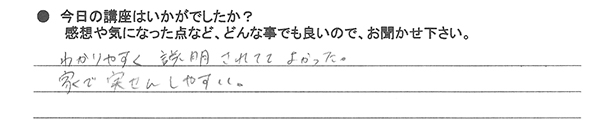 ● 今日の講座はいかがでしたか？
感想や気になった点など、どんな事でも良いので、お聞かせ下さい。
わかりやすく 説明 されてて よかった。
家で 実せん しやすい。